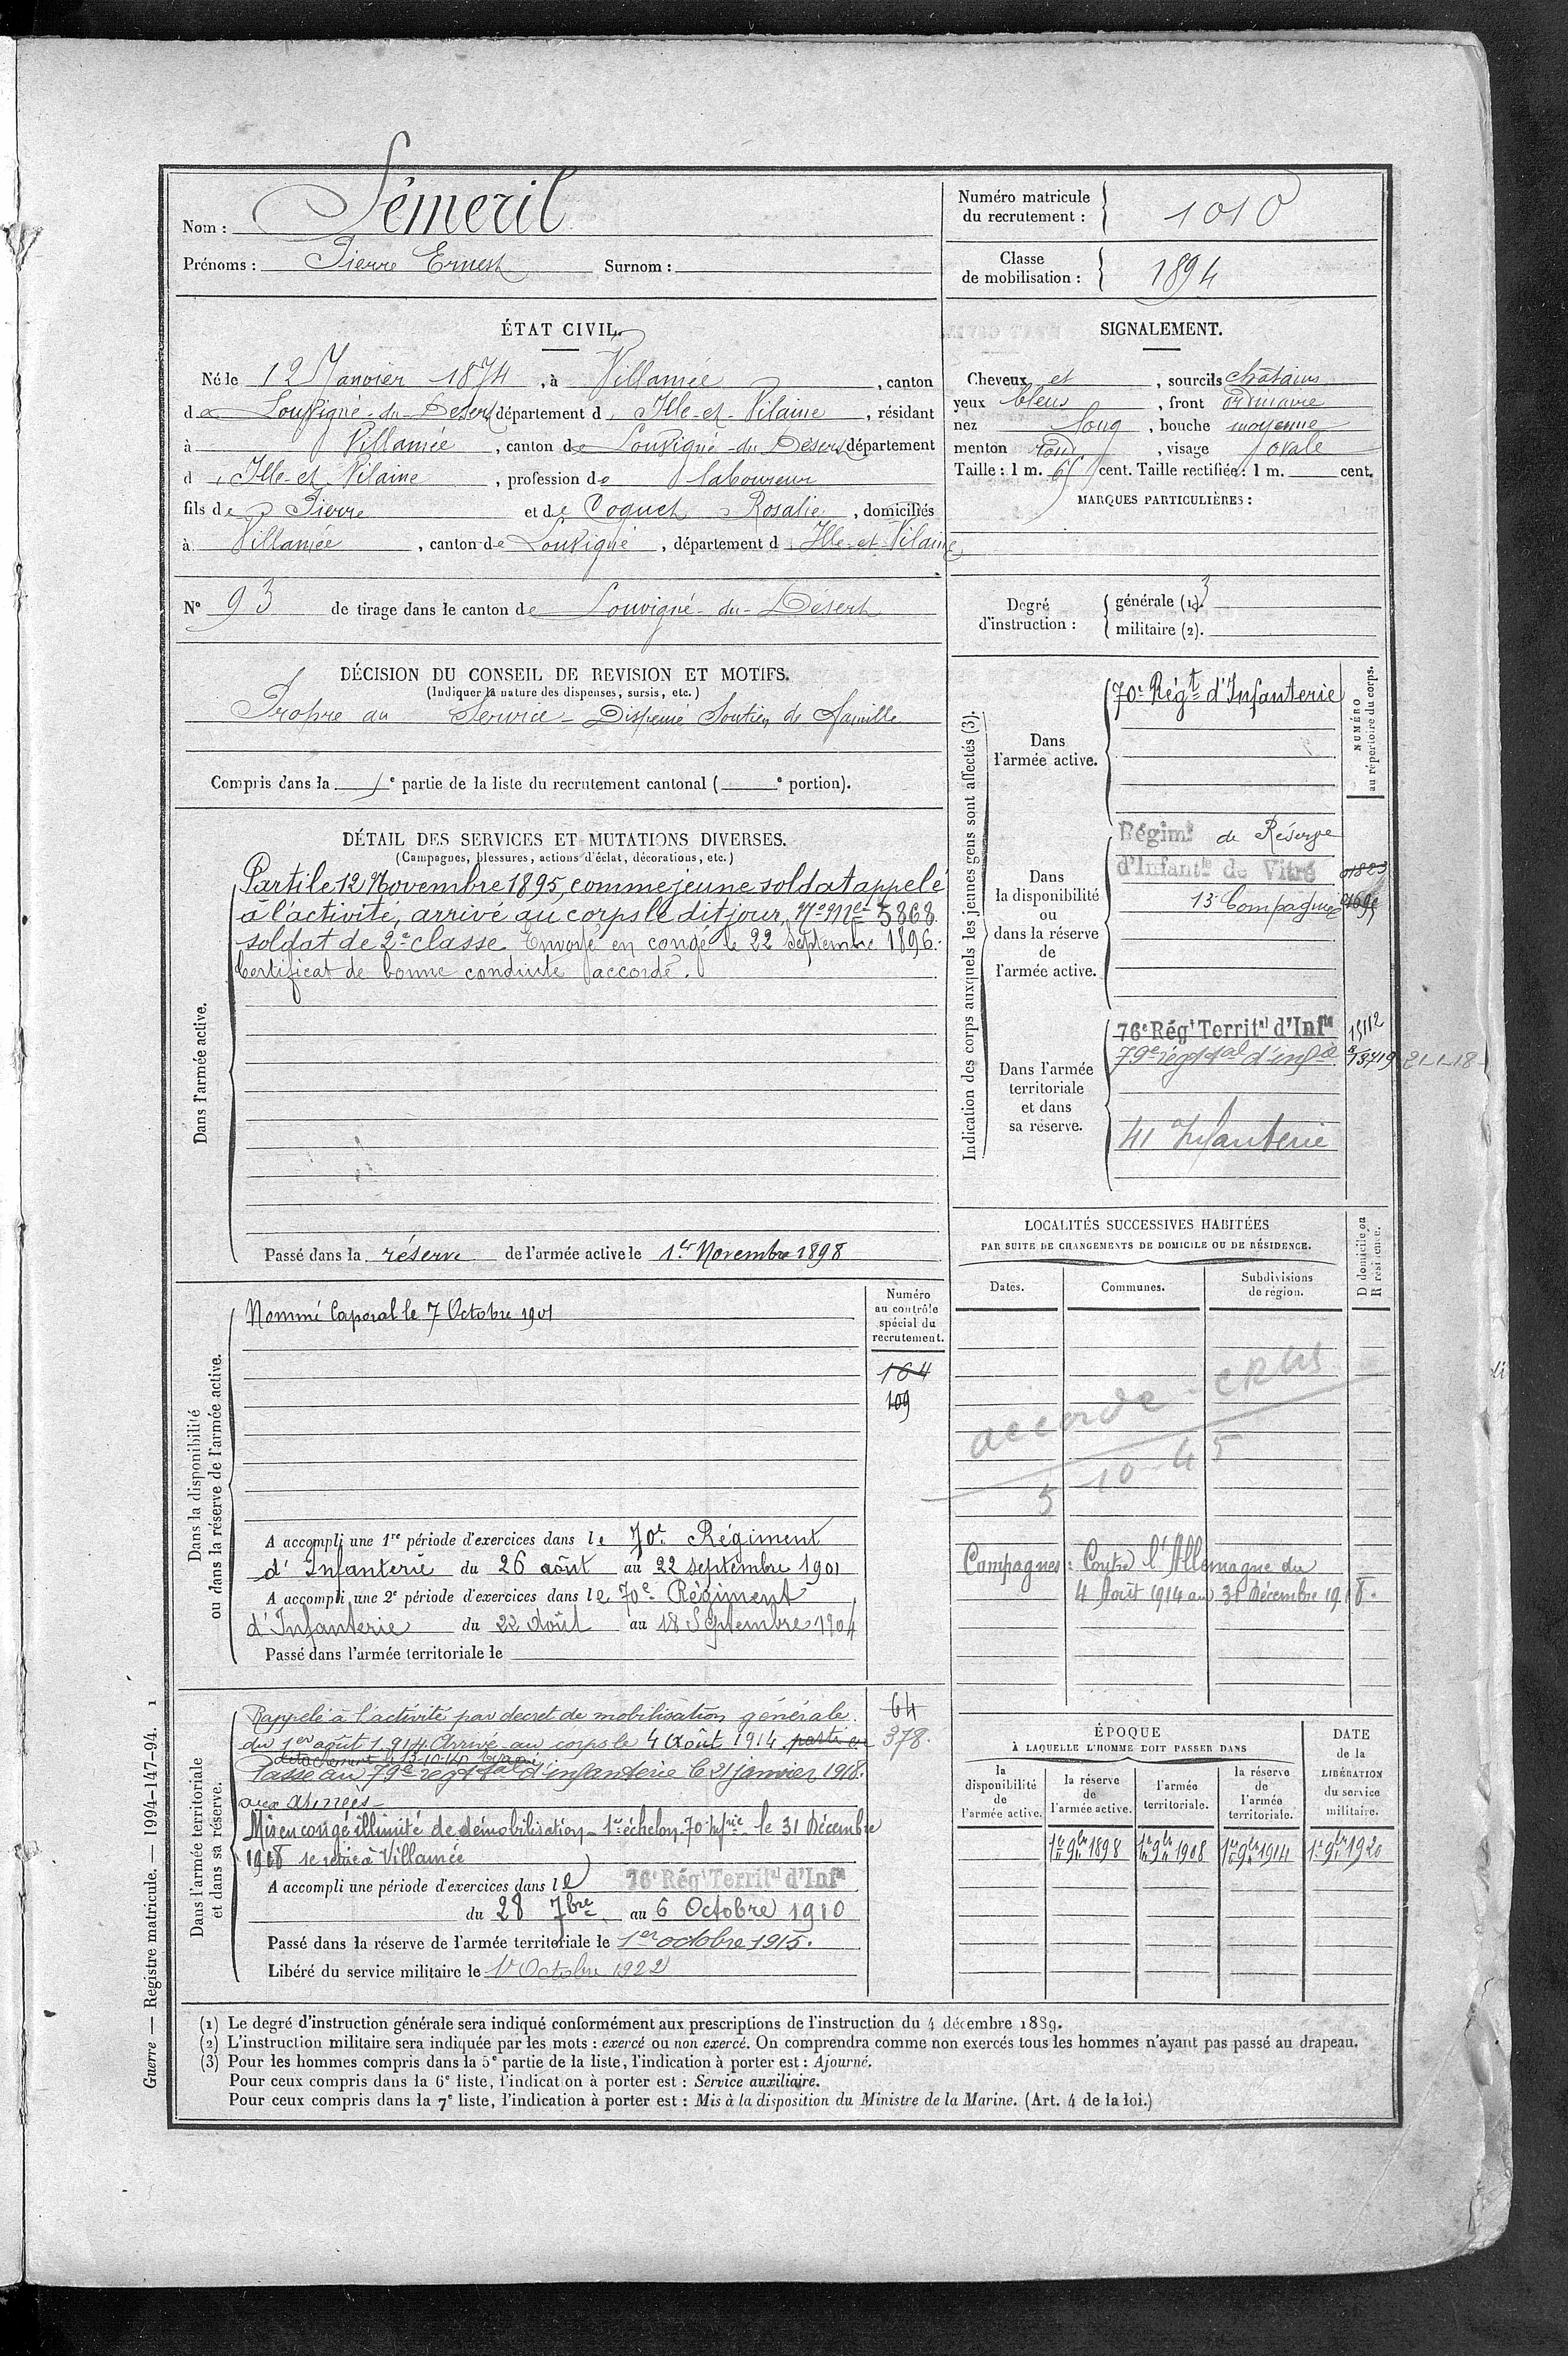 Nom : Sémeril
Prénoms : Pierre Ernest Surnom :
Numéro matricule du recrutement : 1010
Classe de mobilisation : 1894
ÉTAT CIVIL.
Né le 12 Janvier 1874, à Villamée, canton
de Louvigné-du-Désert département d'Ille-et-Vilaine, résidant
à Villamée, canton de Louvigné-du-Désert département
d'Ille-et-Vilaine, profession de laboureur
fils de Pierre et de Coquet Rosalie, domiciliés
à Villamée, canton de Louvigné, département d'Ille-et-Vilaine
N° 93 de tirage dans le canton de Louvigné-du-Désert
SIGNALEMENT.
Cheveux et, sourcils châtains
yeux bleus, front ordinaire
nez long, bouche moyenne
menton rond, visage ovale
Taille : 1 m. 65 cent. Taille rectifiée : 1 m. cent.
MARQUES PARTICULIÈRES :
Degré d'instruction :
générale (1). 3
militaire (2).
DÉCISION DU CONSEIL DE REVISION ET MOTIFS.
(Indiquer la nature des dispenses, sursis, etc.)
Propre au Service - Dispensé Soutien de famille
Compris dans la 1e partie de la liste du recrutement cantonal ( e portion).
DÉTAIL DES SERVICES ET MUTATIONS DIVERSES.
(Campagnes, blessures, actions d'éclat, décorations, etc.)
Dans l'armée active.
Parti le 12 Novembre 1895, comme jeune soldat appelé
à l'activité, arrivé au corps le dit jour, No Mle 5868.
soldat de 2e classe. Envoyé en congé le 22 Septembre 1896.
Certificat de bonne conduite accordé.
Passé dans la réserve de l'armée active le 1er Novembre 1898
Indication des corps auxquels les jeunes gens sont affectés (3).
NUMÉRO au répertoire du corps.
Dans l'armée active.
70e Régt d'Infanterie
Dans la disponibilité ou dans la réserve de l'armée active.
Régimt de Réserve
d'Infantie de Vitré
13e Compagnie
Dans l'armée territoriale et dans sa réserve.
76e Régt Territal d'Infie
15112
79e régt tal d'infie 13719 21-1-18
41 Infanterie
Dans la disponibilité ou dans la réserve de l'armée active.
Nommé Caporal le 7 Octobre 1901
Numéro au contrôle spécial du recrutement.
164
109
A accompli une 1re période d'exercices dans le 70e Régiment
d'Infanterie du 26 août au 22 septembre 1901
A accompli une 2e période d'exercices dans le 70e Régiment
d'Infanterie du 22 Août au 18 Septembre 1904
Passé dans l'armée territoriale le
LOCALITÉS SUCCESSIVES HABITÉES
PAR SUITE DE CHANGEMENTS DE DOMICILE OU DE RÉSIDENCE.
Dates. Communes. Subdivisions de région. D domicile ou R résidence.
accordé
5 10 45
Campagnes : Contre l'Allemagne du
4 Août 1914 au 31 Décembre 1918.
Dans l'armée territoriale et dans sa réserve.
Rappelé à l'activité par décret de mobilisation générale
du 1er août 1914. Arrivé au corps le 4 Août 1914 parti en
détachement le 13-10-14
Passé au 79e régt tal d'infanterie le 21 janvier 1918.
aux armées
Mis en congé illimité de démobilisation 1er échelon 70 Infie le 31 Décembre
1918 se retire à Villamée
64
378.
A accompli une période d'exercices dans le 76e Régt Territal d'Infie
du 28 7bre au 6 Octobre 1910
Passé dans la réserve de l'armée territoriale le 1er octobre 1915.
Libéré du service militaire le 1er Octobre 1922
ÉPOQUE
À LAQUELLE L'HOMME DOIT PASSER DANS
la disponibilité de l'armée active.
la réserve de l'armée active.
l'armée territoriale.
la réserve de l'armée territoriale.
DATE de la LIBÉRATION du service militaire.
1er 9bre 1898 1er 9bre 1908 1er 9bre 1914 1er 9bre 1920
(1) Le degré d'instruction générale sera indiqué conformément aux prescriptions de l'instruction du 4 décembre 1889.
(2) L'instruction militaire sera indiquée par les mots : exercé ou non exercé. On comprendra comme non exercés tous les hommes n'ayant pas passé au drapeau.
(3) Pour les hommes compris dans la 5e partie de la liste, l'indication à porter est : Ajourné.
Pour ceux compris dans la 6e liste, l'indication à porter est : Service auxiliaire.
Pour ceux compris dans la 7e liste, l'indication à porter est : Mis à la disposition du Ministre de la Marine. (Art. 4 de la loi.)
Guerre — Registre matricule. — 1994-147-94. 1